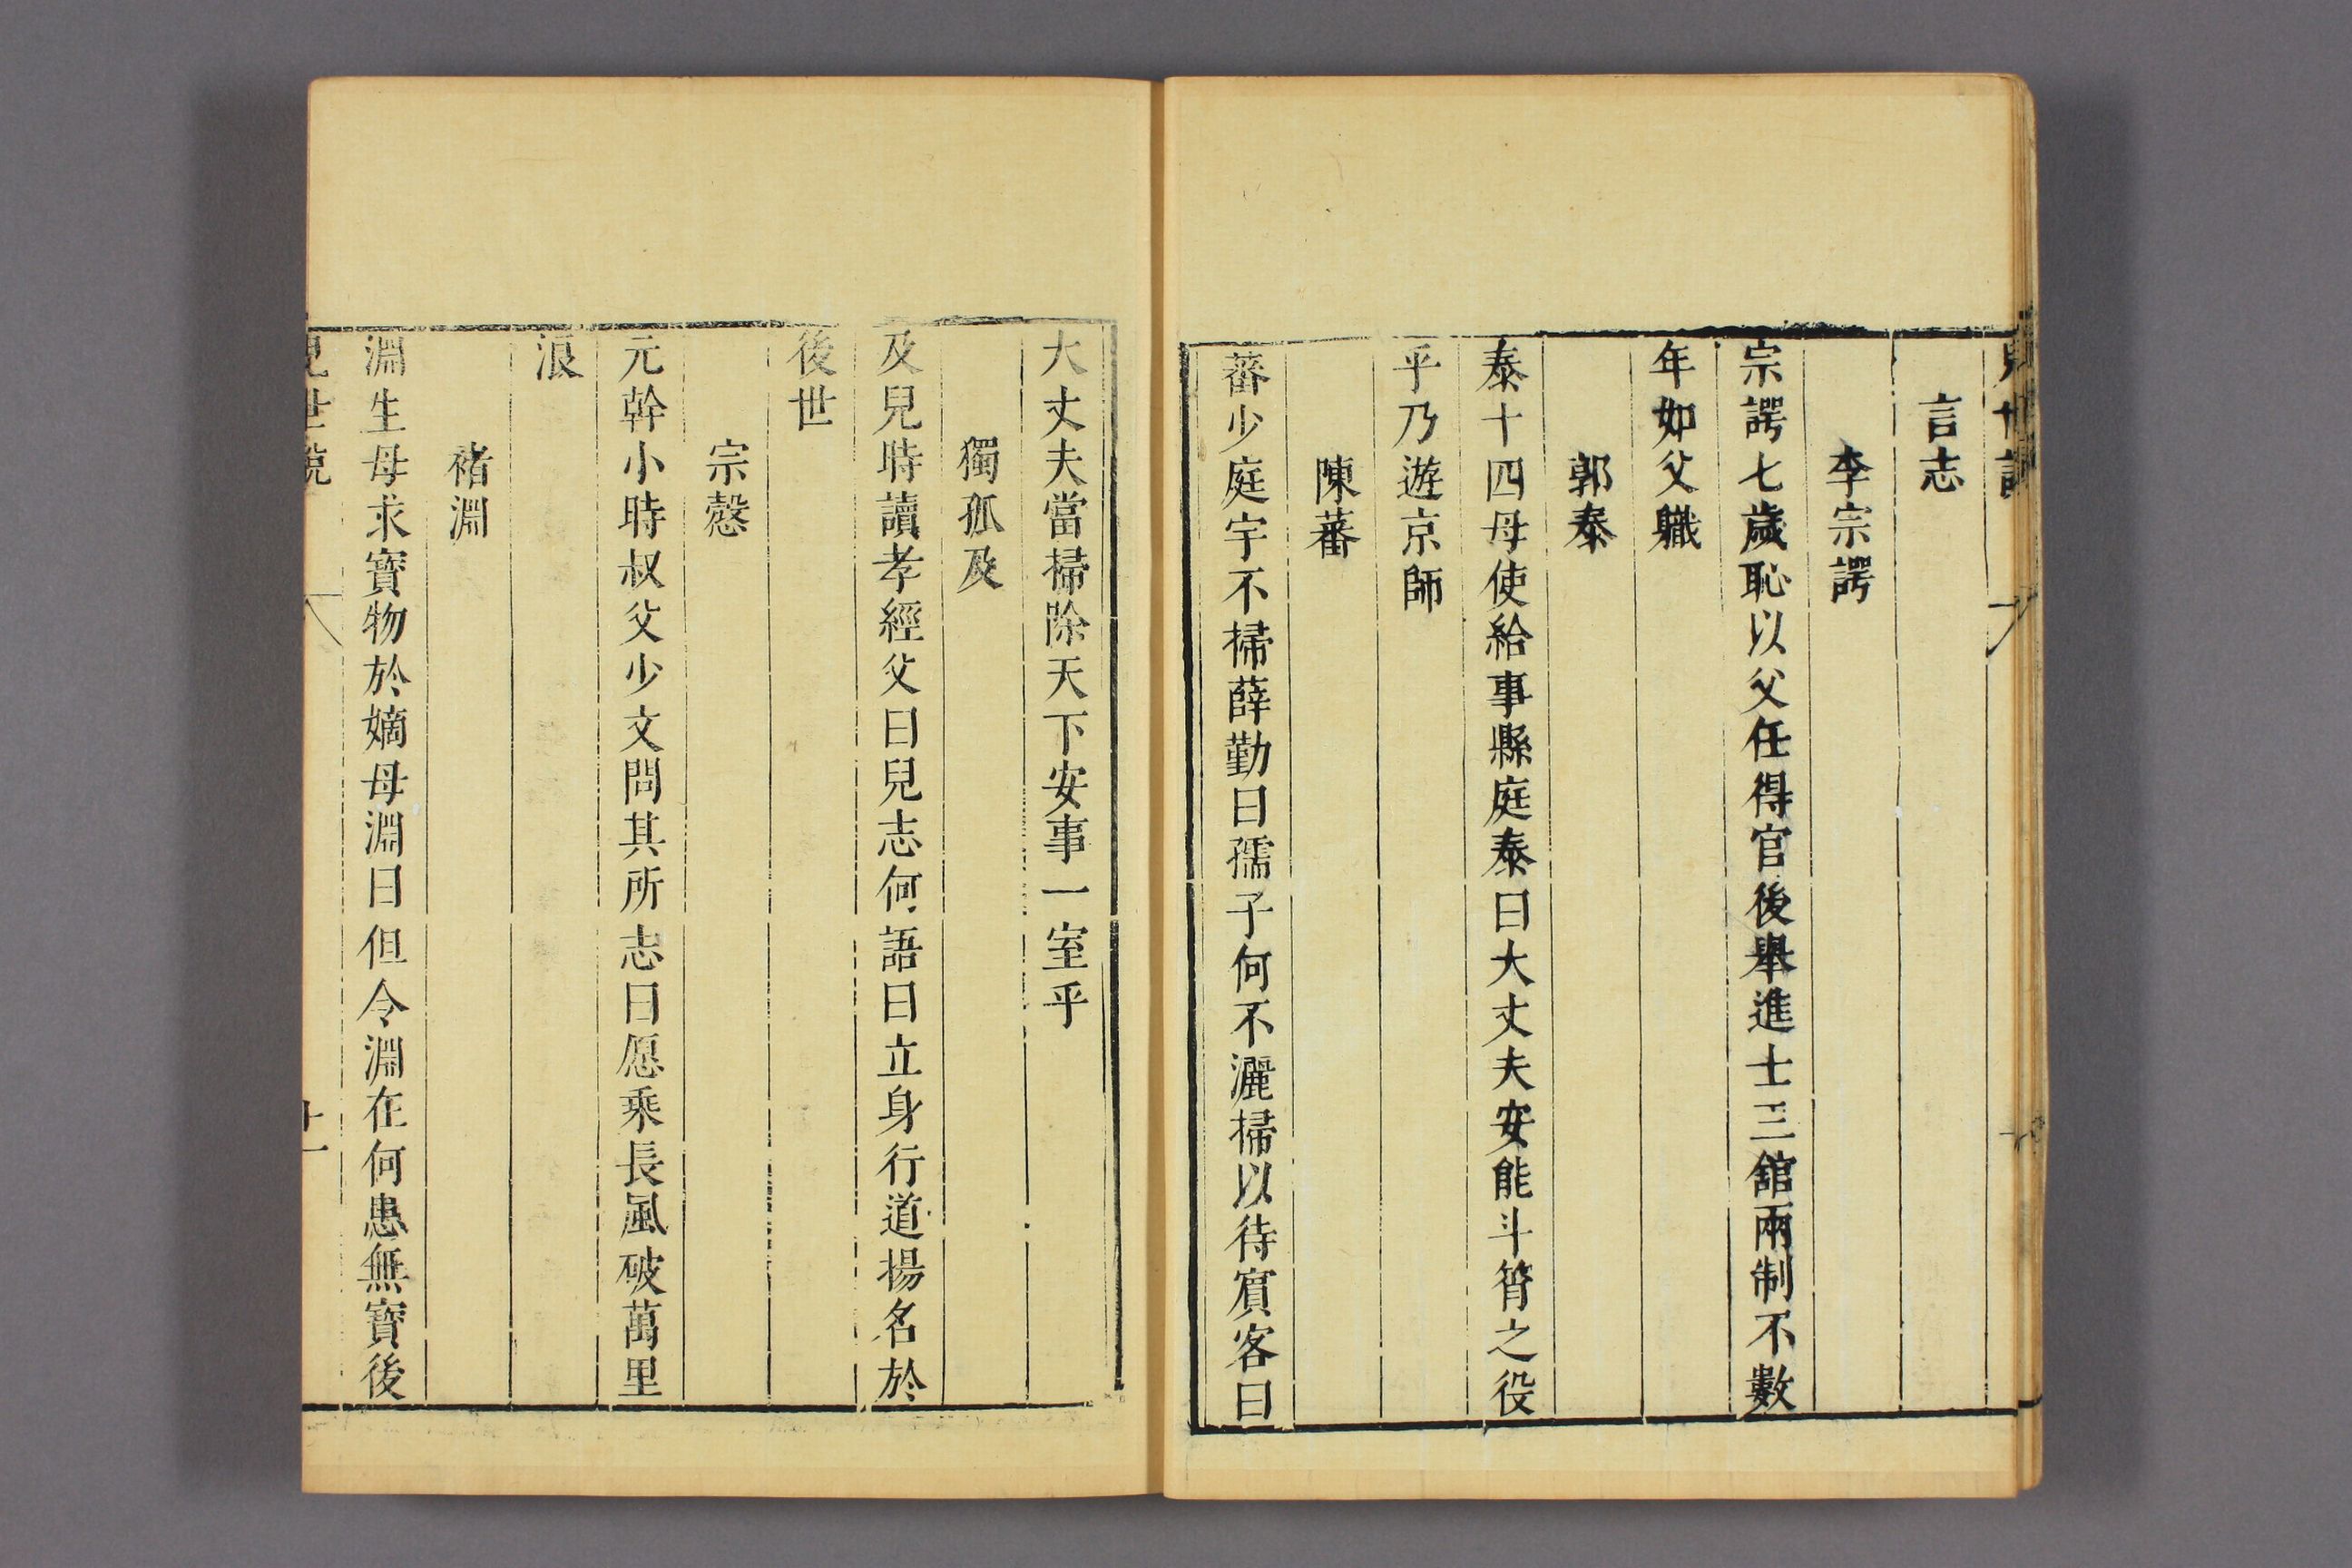 言志
李宗諤
宗諤七歲恥以父任得官後舉進士三館兩制不數
年如父職
郭泰
泰十四母使給事縣庭泰曰大丈夫安能斗筲之役
乎乃遊京師
陳蕃
蕃少庭宇不掃薛勤曰孺子何不灑掃以待賓客曰
大丈夫當掃除天下安事一室乎
獨孤及
及兒時讀孝經父曰兒志何語曰立身行道揚名於
後世
宗慤
元幹小時叔父少文問其所志曰愿乘長風破萬里
浪
褚淵
淵生母求寶物於嫡母淵曰但令淵在何患無寶後
兒世說